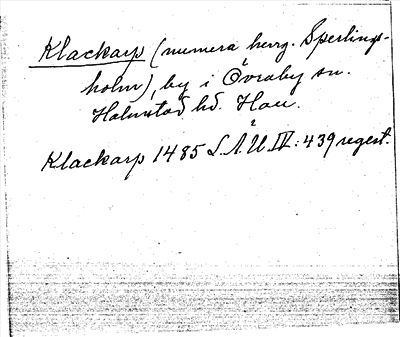 Klackarp (numera herrg. Sperlings-
holm), by i Övraby sn.
Halmstad hd. Hall.
Klackarp 1485 L.Å.U. IV: 439 regest.